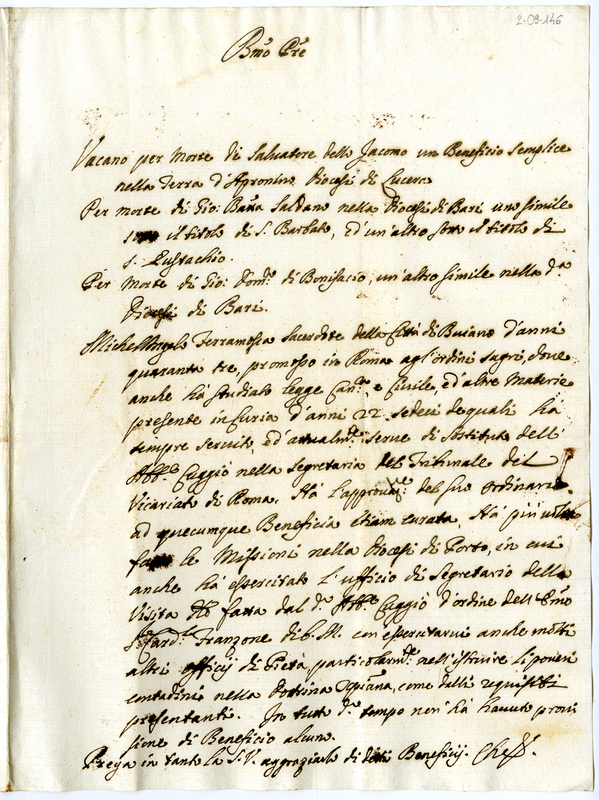 2-09-146
Bmo Pre
Vacano per Morte di Salvatore dello Jacomo un Beneficio semplice
nella Terra d'Apronino Diocesi di Lucera
Per morte di Gio: Batta Saldano nella Diocesi di Bari uno simile
il titolo di S. Barbato, ed un'altro sotto il titolo di
S. Eustachio.
Per Morte di Gio: Dom:co di Bonifacio, un'altro simile nella d.a
Diocesi di Bari.
Michel'Angelo Terramossa Sacerdote della Città di Buiano d'anni
quaranta tre, promosso in Roma agl'ordini sagri, dove
anche hà studiato legge Can:ca, e Civile, ed altre Materie
presente in Curia d'anni 22 sedeci de quali hà
sempre servito, ed attualm:te serve di sostituto dell'
Abb:e Caggiò nella segretaria del Tribunale del
Vicariato di Roma. Hà l'approvaz:ne del suo ordinario
ad quecumque Beneficia etiam curata. Hà più volte
fatto le Missioni nella Diocesi di Porto, in cui
anche hà essercitato l'ufficio di Segretario della
Visita fatta dal d.o Abb:e Caggiò d'ordine dell'Emo
S. Card:le Franzone di b. M. con essercitarvi anche molti
altri officij di Pietà particolarm:te nell'istruire li poveri
contadini nella Dottrina Xpiana, come dalli requisiti
presentanti. In tutto d.o tempo non hà havuto provi
sione di Beneficio alcuno.
Prega in tanto la S.V. aggraziarlo di detti Beneficij. Che